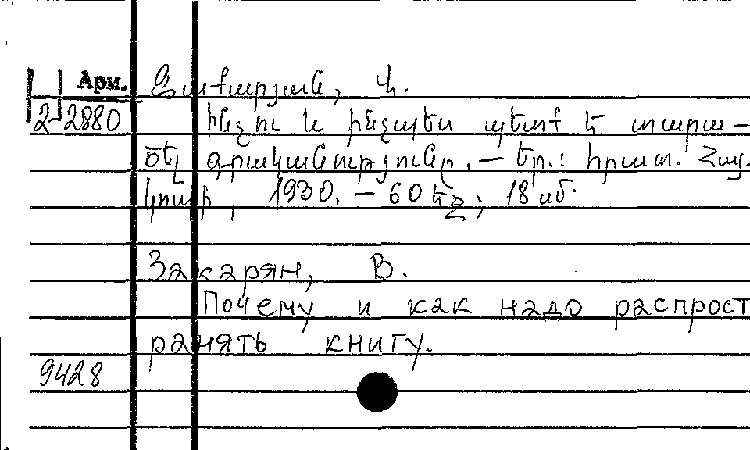 Арм.
2-2880
Զաքարյան, Վ.
Ինչու և ինչպես պետք է տարա-
ծել գրականություն. — Եր.: Հրատ. Հայ.
կոոպ, 1930. — 60 էջ; 18 սմ.
Закарян, В.
Почему и как надо распрост
ранять книгу.
9428